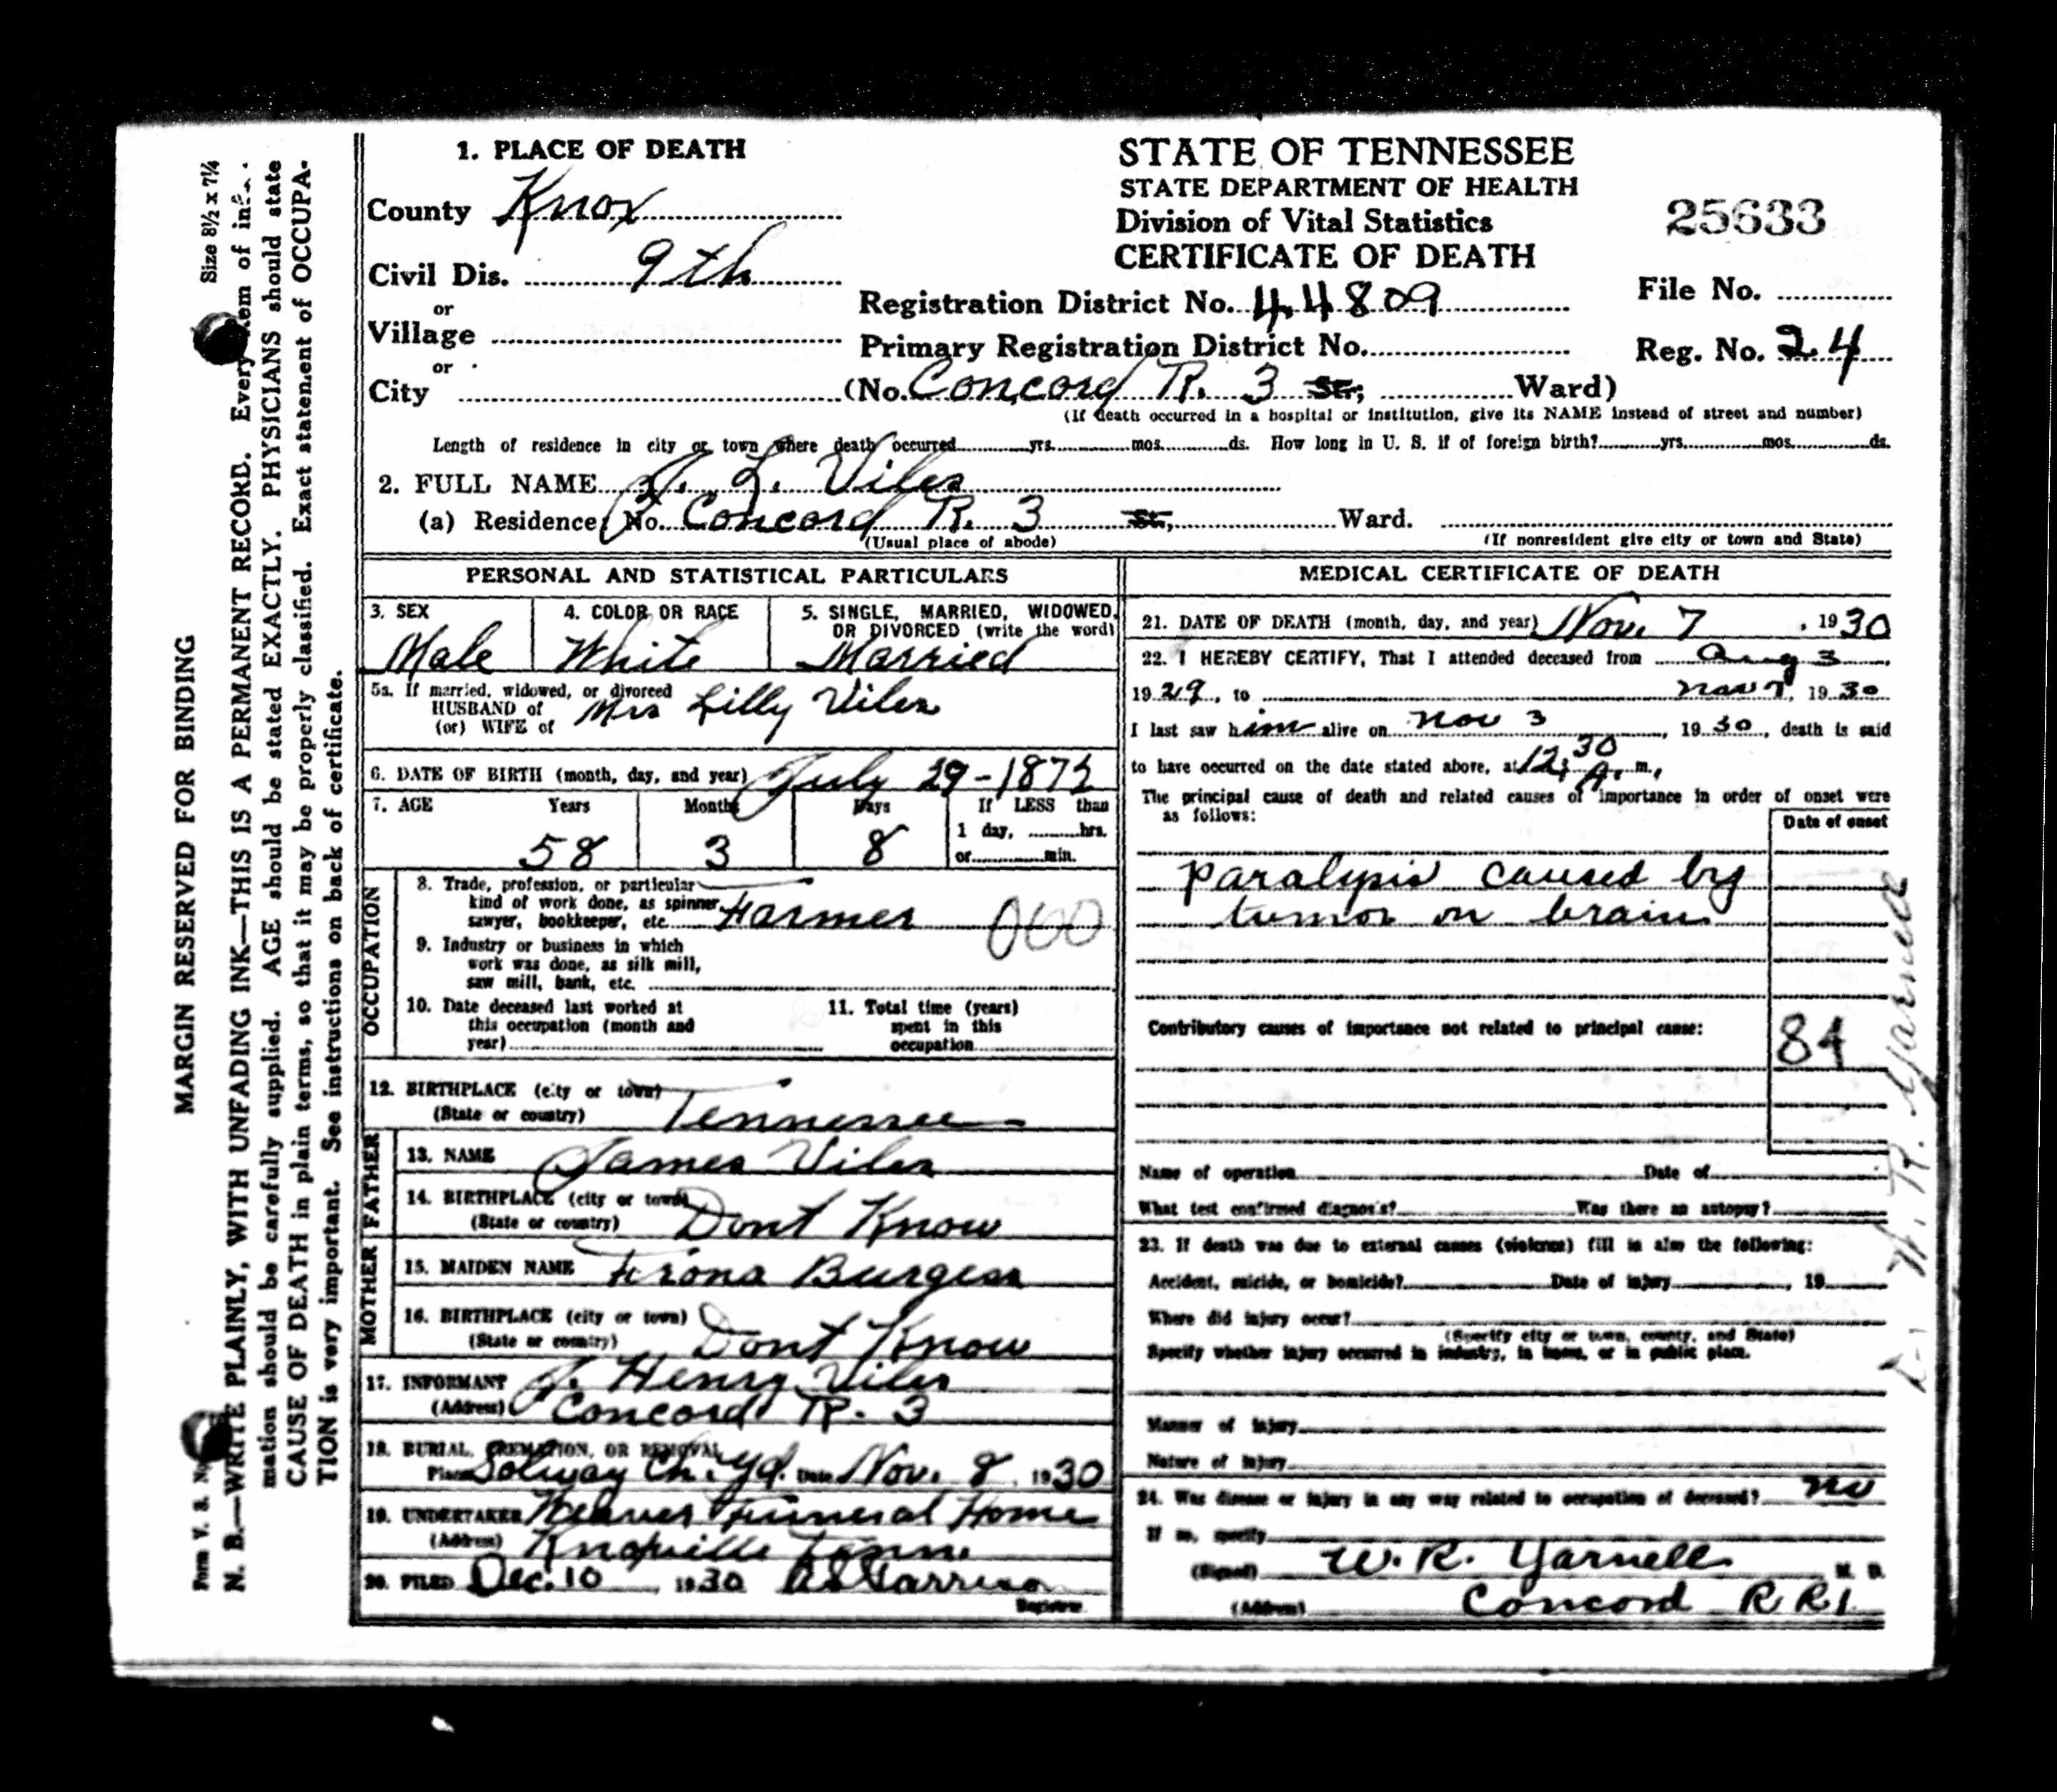 1. PLACE OF DEATH
County Knox
Civil Dis. 9th
or
Village
or
City (No. Concord R. 3 St.; Ward)
STATE OF TENNESSEE
STATE DEPARTMENT OF HEALTH
Division of Vital Statistics
CERTIFICATE OF DEATH
25633
File No.
Registration District No. 44809
Primary Registration District No.
Reg. No. 24
(If death occurred in a hospital or institution, give its NAME instead of street and number)
Length of residence in city or town where death occurred yrs. mos. ds. How long in U. S. if of foreign birth? yrs. mos. ds.
2. FULL NAME J. L. Viles
(a) Residence: No. Concord R. 3 St., Ward.
(Usual place of abode) (If nonresident give city or town and State)
PERSONAL AND STATISTICAL PARTICULARS
3. SEX 4. COLOR OR RACE 5. SINGLE, MARRIED, WIDOWED,
OR DIVORCED (write the word)
Male White Married
5a. If married, widowed, or divorced
HUSBAND of Mrs Lilly Viles
(or) WIFE of
6. DATE OF BIRTH (month, day, and year) July 29-1872
7. AGE Years Months Days If LESS than
58 3 8 1 day, hrs.
or min.
OCCUPATION
8. Trade, profession, or particular
kind of work done, as spinner,
sawyer, bookkeeper, etc. Farmer 060
9. Industry or business in which
work was done, as silk mill,
saw mill, bank, etc.
10. Date deceased last worked at
this occupation (month and
year)
11. Total time (years)
spent in this
occupation
12. BIRTHPLACE (city or town)
(State or country) Tennessee
FATHER
13. NAME James Viles
14. BIRTHPLACE (city or town)
(State or country) Dont Know
MOTHER
15. MAIDEN NAME Firona Burgess
16. BIRTHPLACE (city or town)
(State or country) Dont Know
17. INFORMANT J. Henry Viles
(Address) Concord R. 3
18. BURIAL, CREMATION, OR REMOVAL
Place Solway Ch. Yd. Date Nov. 8 1930
19. UNDERTAKER Weaver Funeral Home
(Address) Knoxville Tenn.
20. FILED Dec. 10, 1930 Garrison
Registrar.
MEDICAL CERTIFICATE OF DEATH
21. DATE OF DEATH (month, day, and year) Nov. 7, 1930
22. I HEREBY CERTIFY, That I attended deceased from Aug 3,
1929, to Nov 7, 1930
I last saw him alive on Nov 3, 1930, death is said
to have occurred on the date stated above, at 12:30 A. m.,
The principal cause of death and related causes of importance in order of onset were
as follows:
Date of onset
paralysis caused by
tumor on brain
Contributory causes of importance not related to principal cause:
84
Name of operation Date of
What test confirmed diagnosis? Was there an autopsy?
23. If death was due to external causes (violence) fill in also the following:
Accident, suicide, or homicide? Date of injury, 19
Where did injury occur?
(Specify city or town, county, and State)
Specify whether injury occurred in industry, in home, or in public place.
Manner of injury
Nature of injury
24. Was disease or injury in any way related to occupation of deceased? no
If so, specify
(Signed) W. R. Yarnell M. D.
(Address) Concord RR1
W. R. Yarnell
MARGIN RESERVED FOR BINDING
Form V. S. No. Size 8½ x 7¼
N. B.—WRITE PLAINLY, WITH UNFADING INK—THIS IS A PERMANENT RECORD. Every item of infor-
mation should be carefully supplied. AGE should be stated EXACTLY. PHYSICIANS should state
CAUSE OF DEATH in plain terms, so that it may be properly classified. Exact statement of OCCUPA-
TION is very important. See instructions on back of certificate.